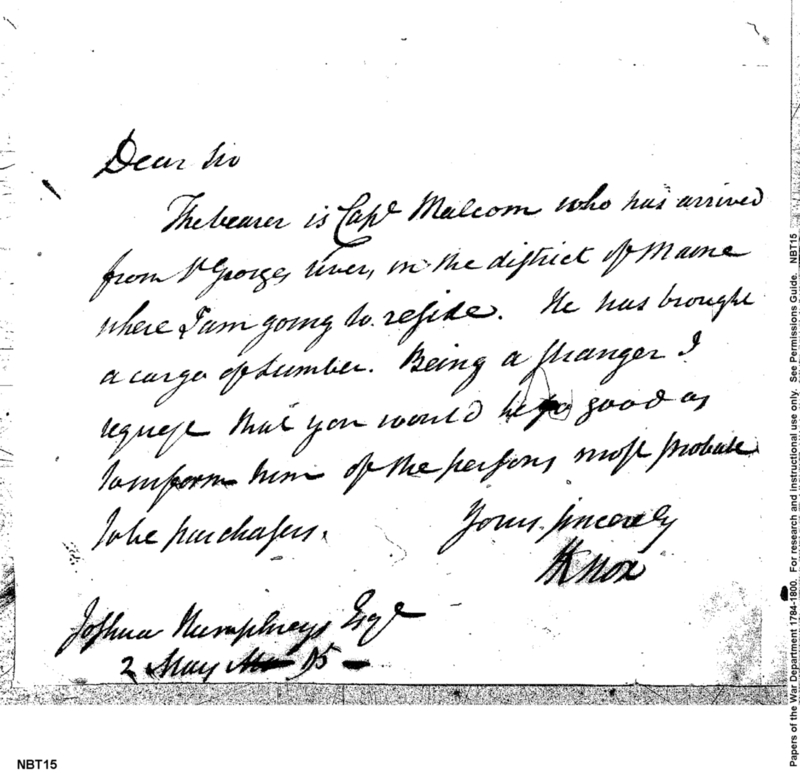 Dear Sir
The bearer is Capt Malcom who has arrived
from St Georges river, in the district of Maine
where I am going to reside. He has brought
a cargo of Lumber. Being a stranger I
request that you would be so good as
to inform him of the persons most probable
to be purchasers.
Yours sincerely
HKnox
Joshua Humphreys Esqe
2 May 95
NBT15
Papers of the War Department 1784-1800. For research and instructional use only. See Permissions Guide. NBT15